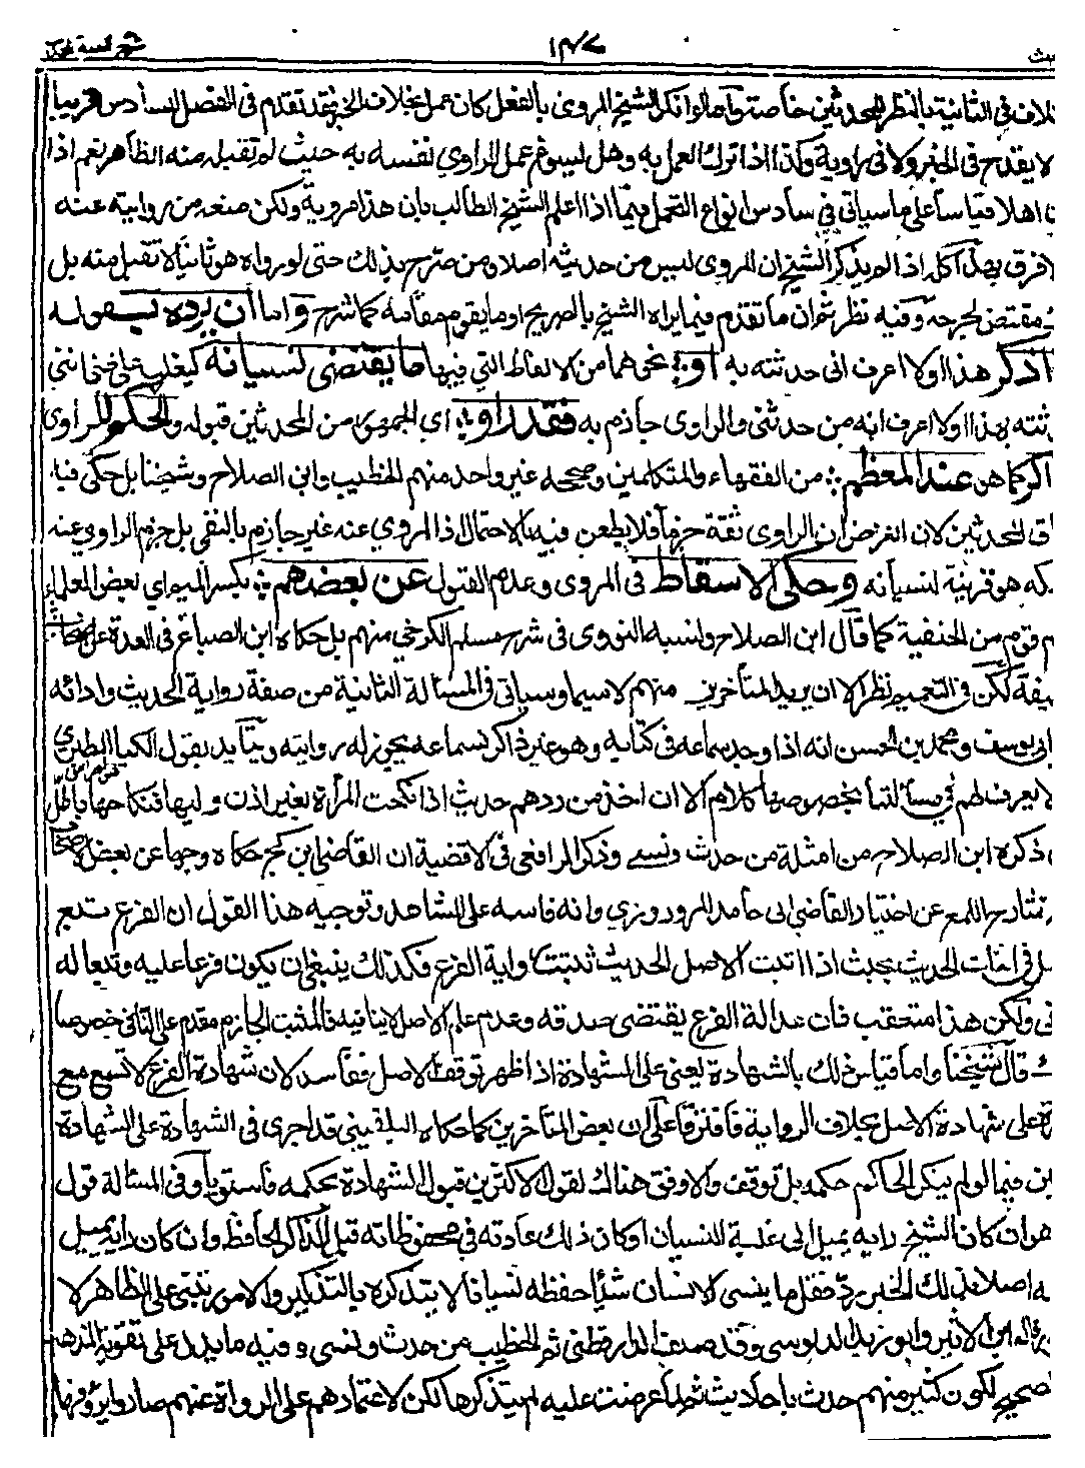 ١٤٧
لاف في الثانية بالنظر للمحدثين خاصة وأما لو انكر الشيخ المروي بالفعل كان عمل بخلاف الخبر فقد تقدم في الفصل السادس قريبا
لا يقدح في الخبر ولا في راويه وكذا اذا ترك العمل به وهل يسوغ عمل الراوي لنفسه به حيث لم تقبله منه الظاهر نعم اذا
اهلا قياسا على ما سيأتي في سادس انواع التحمل فيما اذا اعلم الشيخ الطالب بان هذا مرويه ولكن منعه من روايته عنه
لا فرق بهذا كله اذا لم يذكر الشيخ ان المروي ليس من حديثه اصلا ومن صرح بذلك حتى لو رواه هو ثانيا لا تقبل منه بل
مقتض لجرحه وفيه نظر ثم ان ما تقدم فيما يراه الشيخ بالصريح او ما يقوم مقامه كما شرح واما ان يرده بـ قوله
اذكر هذا او لا اعرف اني حدثته به او نحوهما من الالفاظ التي فيها ما يقتضي لنسيانه كيغلب على ظني انني
ثته بهذا او لا اعرف انه من حديثي والراوي جازم به فقد راوا اي الجمهور من المحدثين قبوله والحكم للراوي
اكر كما هو عند المعظم من الفقهاء والمتكلمين وصححه غير واحد منهم الخطيب وابن الصلاح وشيخنا بل حكى فيه
اق المحدثين لان الفرض ان الراوي ثقة جزما فلا يطعن فيه بالاحتمال اذ المروي عنه غير جازم بالنفي بل جزم الراوي عنه
كه هو قرينة لنسيانه وحكي الاسقاط في المروي وعدم القبول عن بعضهم بكسر الميم اي بعض العلماء
م قوم من الحنفية كما قال ابن الصلاح ولنسبه النووي في شرح مسلم للكرخي منهم بل حكاه ابن الصباغ في العدة عن اصحاب
يفة لكن في التعميم نظر الا ان يريد المتأخرين منهم لا سيما وسيأتي في المسألة الثانية من صفة رواية الحديث وادائه
ابي يوسف ومحمد بن الحسن انه اذا وجد سماعه في كتابه وهو غير ذاكر لسماعه يجوز له روايته ويتأيد بقول الكيا الطبري
لا يعرف لهم في مسألتنا بخصوصها كلام الا ان اخذ من ردهم حديث اذا نكحت المرأة بغير اذن وليها فنكاحها باطل
ذكره ابن الصلاح من امثلة من حدث ونسي وذكر الرافعي في الاقضية ان القاضي ابن كج حكاه وجها عن بعض اصحابنا
شارح اللمع عن اختيار القاضي ابي حامد المروروزي وانه قاسه على الشاهد وتوجيه هذا القول ان الفرع تبع
صل في اثبات الحديث بحيث اذا اثبت الاصل الحديث ثبتت رواية الفرع فكذلك ينبغي ان يكون فرعا عليه وتبعا له
في ولكن هذا متعقب فان عدالة الفرع يقتضي صدقه وعدم علم الاصل لا ينافيه فالمثبت الجازم مقدم على النافي خصوصا
ك قال شيخنا واما قياس ذلك بالشهادة يعني على الشهادة اذا ظهر توقف الاصل ففاسد لان شهادة الفرع لا تسمع مع
رة على شهادة الاصل بخلاف الرواية فافترقا على ان بعض المتأخرين كما حكاه البلقيني قد اجرى في الشهادة على الشهادة
ين فيما لو لم ينكر الحاكم حكمه بل توقف والاوفق هناك لقول الاكثرين قبول الشهادة بحكمه فاستويا وفي المسألة قول
هو ان كان الشيخ رأيه يميل الى غلبة النسيان او كان ذلك عادته في محفوظاته قبل الذاكر الحافظ وان كان رأيه يميل
ـه اصلا بذلك الخبر رد فقل ما ينسى الانسان شيئا حفظه نسيانا لا يتذكره بالتذكير والامور تبنى على الظاهر لا
قاله ابن الاثير وابو زيد الدبوسي وقد صنف الدارقطني ثم الخطيب من حدث ونسي وفيه ما يدل على تقوية المذهب
صحيح لكون كثير منهم حدث باحاديث ثم لما عرضت عليه لم يتذكرها لكن لاعتمادهم على الرواة عنهم صاروا يروونها